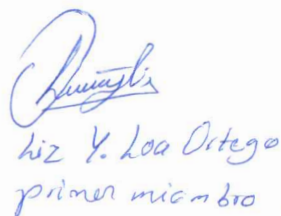 Liz Y. Loa Ortego
primer miambro